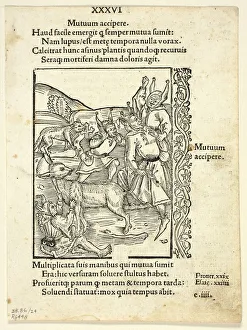 XXXVI
Mutuum accipere.
Haud facile emergit q̃ semper mutua sumit:
Nam lupus/est metę tempora nulla vorax.
Calcitrat hunc asinus plantis quandoq̃ recuruis
Seraq̃ mortiferi damna doloris agit.
Mutuum
accipere.
Multiplicata suis manibus qui mutua sumit
Era: hic versuram soluere stultus habet.
Profuerit parum q̃ metam & tempora tarda:
Soluendi statuat: mox quia tempus abit.
Prouer. xxix
xxxiii
e. iiii.